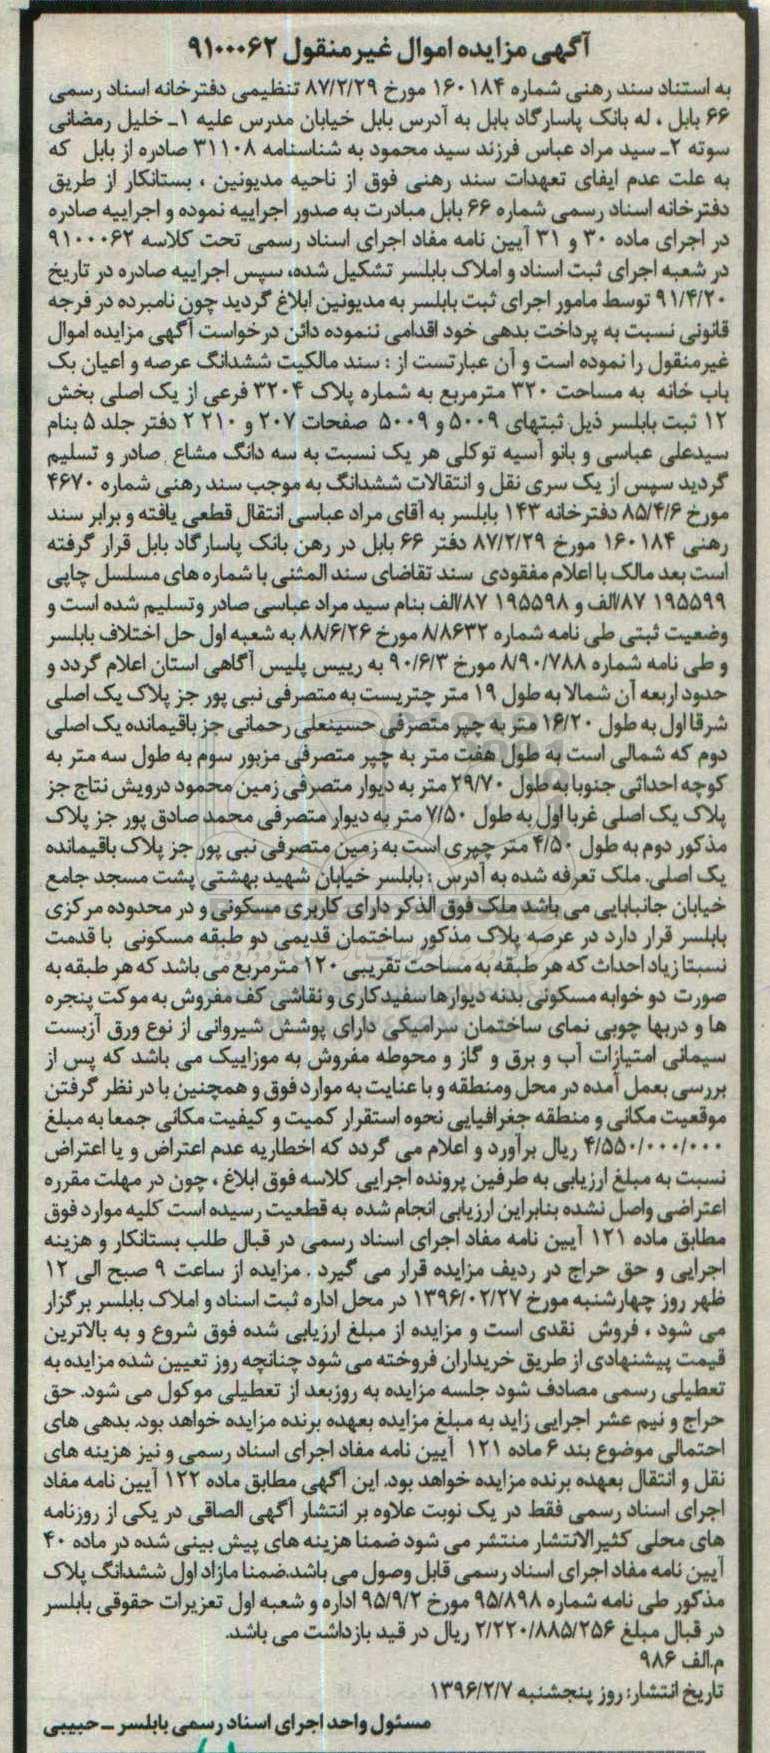 آگهی مزایده اموال غیرمنقول ۹۱۰۰۰۶۲
به استناد سند رهنی شماره ۱۶۰۱۸۴ مورخ ۸۷/۲/۲۹ تنظیمی دفترخانه اسناد رسمی
۶۶ بابل ، له بانک پاسارگاد بابل به آدرس بابل خیابان مدرس علیه ۱ـ خلیل رمضانی
سوته ۲ـ سید مراد عباس فرزند سید محمود به شناسنامه ۳۱۱۰۸ صادره از بابل که
به علت عدم ایفای تعهدات سند رهنی فوق از ناحیه مدیونین ، بستانکار از طریق
دفترخانه اسناد رسمی شماره ۶۶ بابل مبادرت به صدور اجراییه نموده و اجراییه صادره
در اجرای ماده ۳۰ و ۳۱ آیین نامه مفاد اجرای اسناد رسمی تحت کلاسه ۹۱۰۰۰۶۲
در شعبه اجرای ثبت اسناد و املاک بابلسر تشکیل شده، سپس اجراییه صادره در تاریخ
۹۱/۴/۲۰ توسط مامور اجرای ثبت بابلسر به مدیونین ابلاغ گردید چون نامبرده در فرجه
قانونی نسبت به پرداخت بدهی خود اقدامی ننموده دائن درخواست آگهی مزایده اموال
غیرمنقول را نموده است و آن عبارتست از : سند مالکیت ششدانگ عرصه و اعیان یک
باب خانه به مساحت ۳۲۰ مترمربع به شماره پلاک ۳۲۰۴ فرعی از یک اصلی بخش
۱۲ ثبت بابلسر ذیل ثبتهای ۵۰۰۹ و ۵۰۰۹ صفحات ۲۰۷ و ۲۱۰ ۲ دفتر جلد ۵ بنام
سیدعلی عباسی و بانو آسیه توکلی هر یک نسبت به سه دانگ مشاع صادر و تسلیم
گردید سپس از یک سری نقل و انتقالات ششدانگ به موجب سند رهنی شماره ۴۶۷۰
مورخ ۸۵/۴/۶ دفترخانه ۱۴۳ بابلسر به آقای مراد عباسی انتقال قطعی یافته و برابر سند
رهنی ۱۶۰۱۸۴ مورخ ۸۷/۲/۲۹ دفتر ۶۶ بابل در رهن بانک پاسارگاد بابل قرار گرفته
است بعد مالک با اعلام مفقودی سند تقاضای سند المثنی با شماره های مسلسل چاپی
۱۹۵۵۹۹ ۸۷/الف و ۱۹۵۵۹۸ ۸۷/الف بنام سید مراد عباسی صادر وتسلیم شده است و
وضعیت ثبتی طی نامه شماره ۸/۸۶۳۲ مورخ ۸۸/۶/۲۶ به شعبه اول حل اختلاف بابلسر
و طی نامه شماره ۸/۹۰/۷۸۸ مورخ ۹۰/۶/۳ به رییس پلیس آگاهی استان اعلام گردد و
حدود اربعه آن شمالا به طول ۱۹ متر چتریست به متصرفی نبی پور جز پلاک یک اصلی
شرقا اول به طول ۱۶/۲۰ متر به چپر متصرفی حسینعلی رحمانی جز باقیمانده یک اصلی
دوم که شمالی است به طول هفت متر به چپر متصرفی مزبور سوم به طول سه متر به
کوچه احداثی جنوبا به طول ۲۹/۷۰ متر به دیوار متصرفی زمین محمود درویش نتاج جز
پلاک یک اصلی غربا اول به طول ۷/۵۰ متر به دیوار متصرفی محمد صادق پور جز پلاک
مذکور دوم به طول ۴/۵۰ متر چپری است به زمین متصرفی نبی پور جز پلاک باقیمانده
یک اصلی. ملک تعرفه شده به آدرس : بابلسر خیابان شهید بهشتی پشت مسجد جامع
خیابان جانبابایی می باشد ملک فوق الذکر دارای کاربری مسکونی و در محدوده مرکزی
بابلسر قرار دارد در عرصه پلاک مذکور ساختمان قدیمی دو طبقه مسکونی با قدمت
نسبتا زیاد احداث که هر طبقه به مساحت تقریبی ۱۲۰ مترمربع می باشد که هر طبقه به
صورت دو خوابه مسکونی بدنه دیوارها سفیدکاری و نقاشی کف مفروش به موکت پنجره
ها و دربها چوبی نمای ساختمان سرامیکی دارای پوشش شیروانی از نوع ورق آزبست
سیمانی امتیازات آب و برق و گاز و محوطه مفروش به موزاییک می باشد که پس از
بررسی بعمل آمده در محل ومنطقه و با عنایت به موارد فوق و همچنین با در نظر گرفتن
موقعیت مکانی و منطقه جغرافیایی نحوه استقرار کمیت و کیفیت مکانی جمعا به مبلغ
۴/۵۵۰/۰۰۰/۰۰۰ ریال برآورد و اعلام می گردد که اخطاریه عدم اعتراض و یا اعتراض
نسبت به مبلغ ارزیابی به طرفین پرونده اجرایی کلاسه فوق ابلاغ ، چون در مهلت مقرره
اعتراضی واصل نشده بنابراین ارزیابی انجام شده به قطعیت رسیده است کلیه موارد فوق
مطابق ماده ۱۲۱ آیین نامه مفاد اجرای اسناد رسمی در قبال طلب بستانکار و هزینه
اجرایی و حق حراج در ردیف مزایده قرار می گیرد . مزایده از ساعت ۹ صبح الی ۱۲
ظهر روز چهارشنبه مورخ ۱۳۹۶/۰۲/۲۷ در محل اداره ثبت اسناد و املاک بابلسر برگزار
می شود ، فروش نقدی است و مزایده از مبلغ ارزیابی شده فوق شروع و به بالاترین
قیمت پیشنهادی از طریق خریداران فروخته می شود چنانچه روز تعیین شده مزایده به
تعطیلی رسمی مصادف شود جلسه مزایده به روزبعد از تعطیلی موکول می شود. حق
حراج و نیم عشر اجرایی زاید به مبلغ مزایده بعهده برنده مزایده خواهد بود. بدهی های
احتمالی موضوع بند ۶ ماده ۱۲۱ آیین نامه مفاد اجرای اسناد رسمی و نیز هزینه های
نقل و انتقال بعهده برنده مزایده خواهد بود. این آگهی مطابق ماده ۱۲۲ آیین نامه مفاد
اجرای اسناد رسمی فقط در یک نوبت علاوه بر انتشار آگهی الصاقی در یکی از روزنامه
های محلی کثیرالانتشار منتشر می شود ضمنا هزینه های پیش بینی شده در ماده ۴۰
آیین نامه مفاد اجرای اسناد رسمی قابل وصول می باشد.ضمنا مازاد اول ششدانگ پلاک
مذکور طی نامه شماره ۹۵/۸۹۸ مورخ ۹۵/۹/۲ اداره و شعبه اول تعزیرات حقوقی بابلسر
در قبال مبلغ ۲/۲۲۰/۸۸۵/۲۵۶ ریال در قید بازداشت می باشد.
م.الف ۹۸۶
تاریخ انتشار: روز پنجشنبه ۱۳۹۶/۲/۷
مسئول واحد اجرای اسناد رسمی بابلسر ـ حبیبی